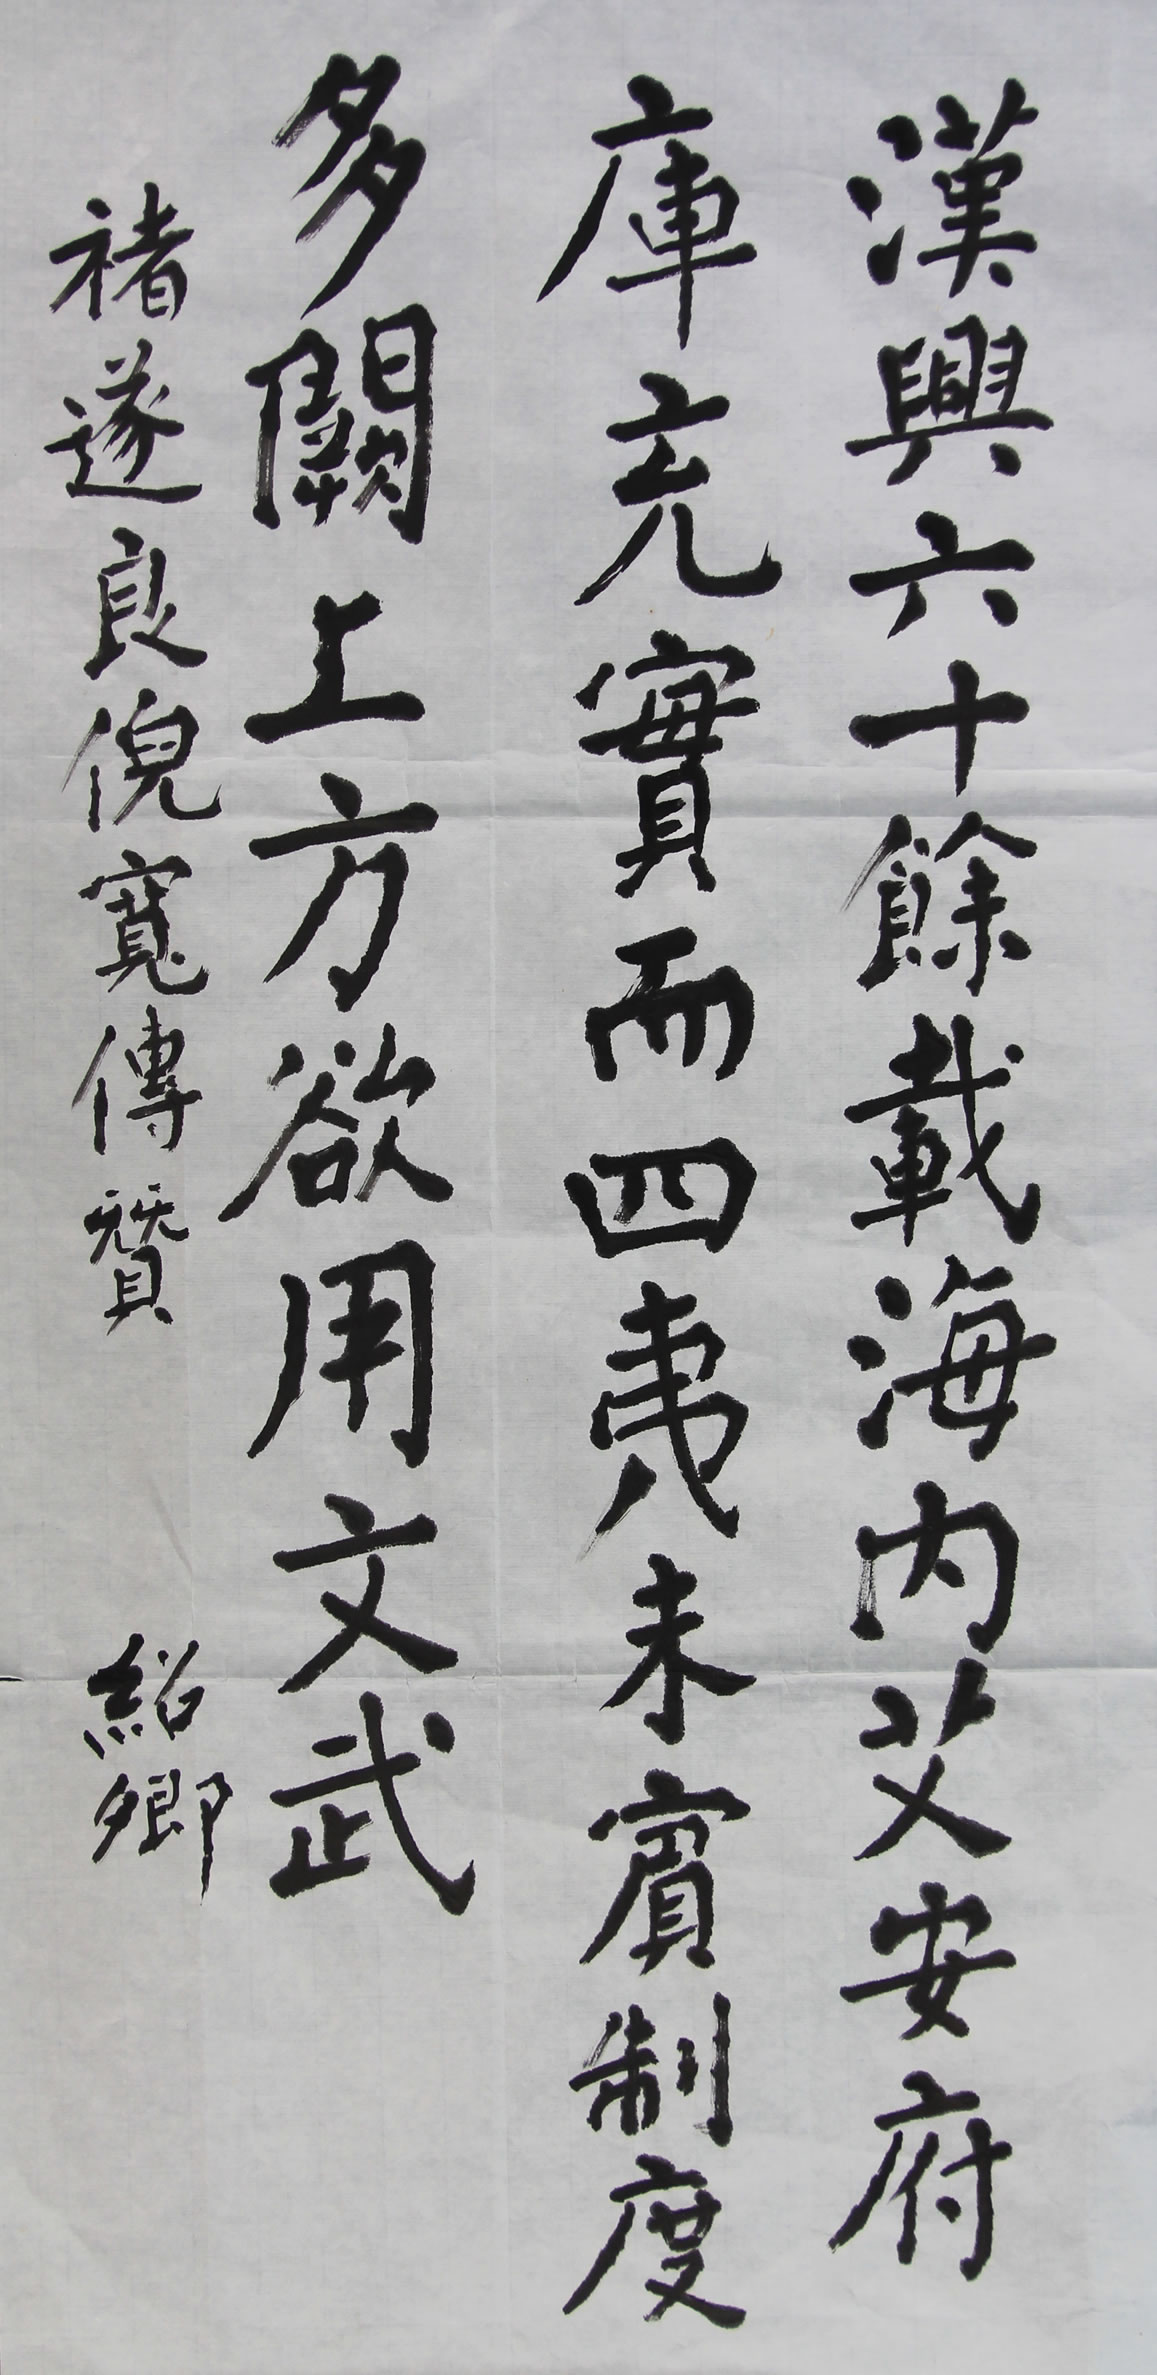 漢興六十餘載海内艾安府
庫充實而四夷未賓制度
多闕上方欲用文武
褚遂良倪寬傳贊
紹卿